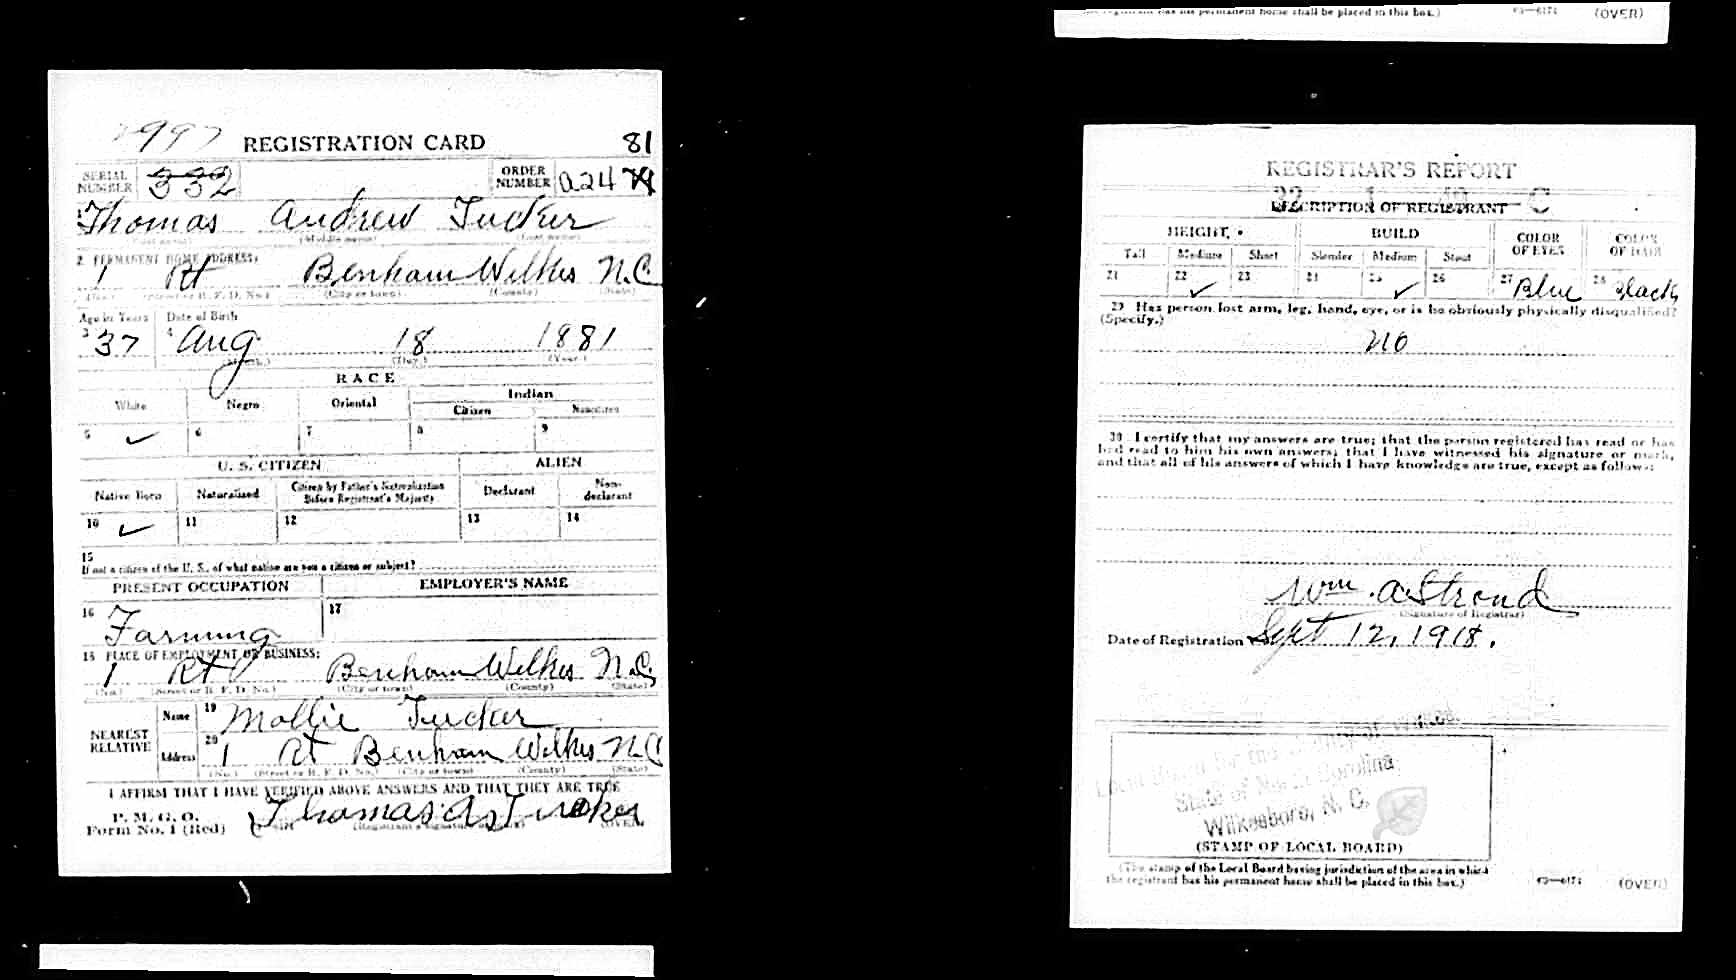 REGISTRATION CARD 81
SERIAL NUMBER 332 ORDER NUMBER
Thomas Andrew Tucker
(Middle name)
2 PERMANENT HOME ADDRESS:
1 Rt Benham Wilkes N.C.
(No.) (Street or R. F. D. No.) (City or town) (County) (State)
Age in Years Date of Birth
3 37 4 Aug 18 1881
(Month.) (Day.) (Year.)
RACE
White Negro Oriental Indian
Citizen Noncitizen
5 ✓ 6 7 8 9
U. S. CITIZEN ALIEN
Native Born Naturalized Citizen by Father's Naturalization Before Registrant's Majority Declarant Non-declarant
10 ✓ 11 12 13 14
15
If not a citizen of the U. S., of what nation are you a citizen or subject?
PRESENT OCCUPATION EMPLOYER'S NAME
16 Farming 17
PLACE OF EMPLOYMENT OR BUSINESS:
1 Rt Benham Wilkes N.C.
(No.) (Street or R. F. D. No.) (City or town) (County) (State)
NEAREST RELATIVE Name 19 Mollie Tucker
Address 20 1 Rt Benham Wilkes N.C
(No.) (Street or R. F. D. No.) (City or town) (County) (State)
I AFFIRM THAT I HAVE VERIFIED ABOVE ANSWERS AND THAT THEY ARE TRUE
P. M. G. O.
Form No. 1 (Red) Thomas A Tucker
the registrant has his permanent home shall be placed in this box.) (OVER)
REGISTRAR'S REPORT
DESCRIPTION OF REGISTRANT
HEIGHT BUILD COLOR OF EYES COLOR OF HAIR
Tall Medium Short Slender Medium Stout
21 22 ✓ 23 24 25 ✓ 26 27 Blue 28 Black
29 Has person lost arm, leg, hand, eye, or is he obviously physically disqualified?
(Specify.)
no
30 I certify that my answers are true; that the person registered has read or has
had read to him his own answers; that I have witnessed his signature or mark,
and that all of his answers of which I have knowledge are true, except as follows:
(Signature of Registrar)
Date of Registration Sept 12, 1918.
Local Board for the County of Wilkes
State of North Carolina
Wilkesboro, N. C.
(STAMP OF LOCAL BOARD)
(The stamp of the Local Board having jurisdiction of the area in which
the registrant has his permanent home shall be placed in this box.) (OVER)